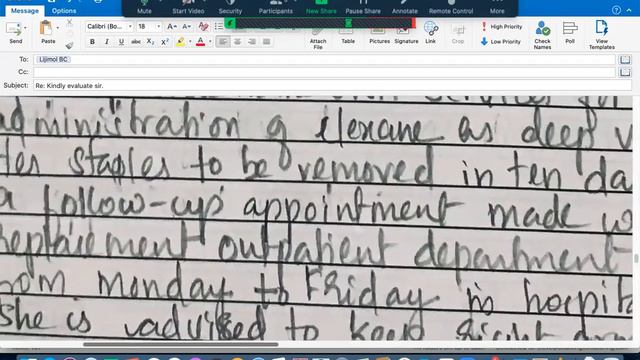 Mute Start Video Security Participants New Share Pause Share Annotate Remote Control More
Message Options
Send Paste Calibri (Bo... 18 Attach File Table Pictures Signature Link Crop High Priority Low Priority Check Names Poll View Templates
B I U abc
To: Lijimol BC
Cc:
Subject: Re: Kindly evaluate sir.
administration of clexane as deep v
staples to be removed in ten da
follow-up appointment made w
outpatient department
Monday to Friday in hospit
she is to keep